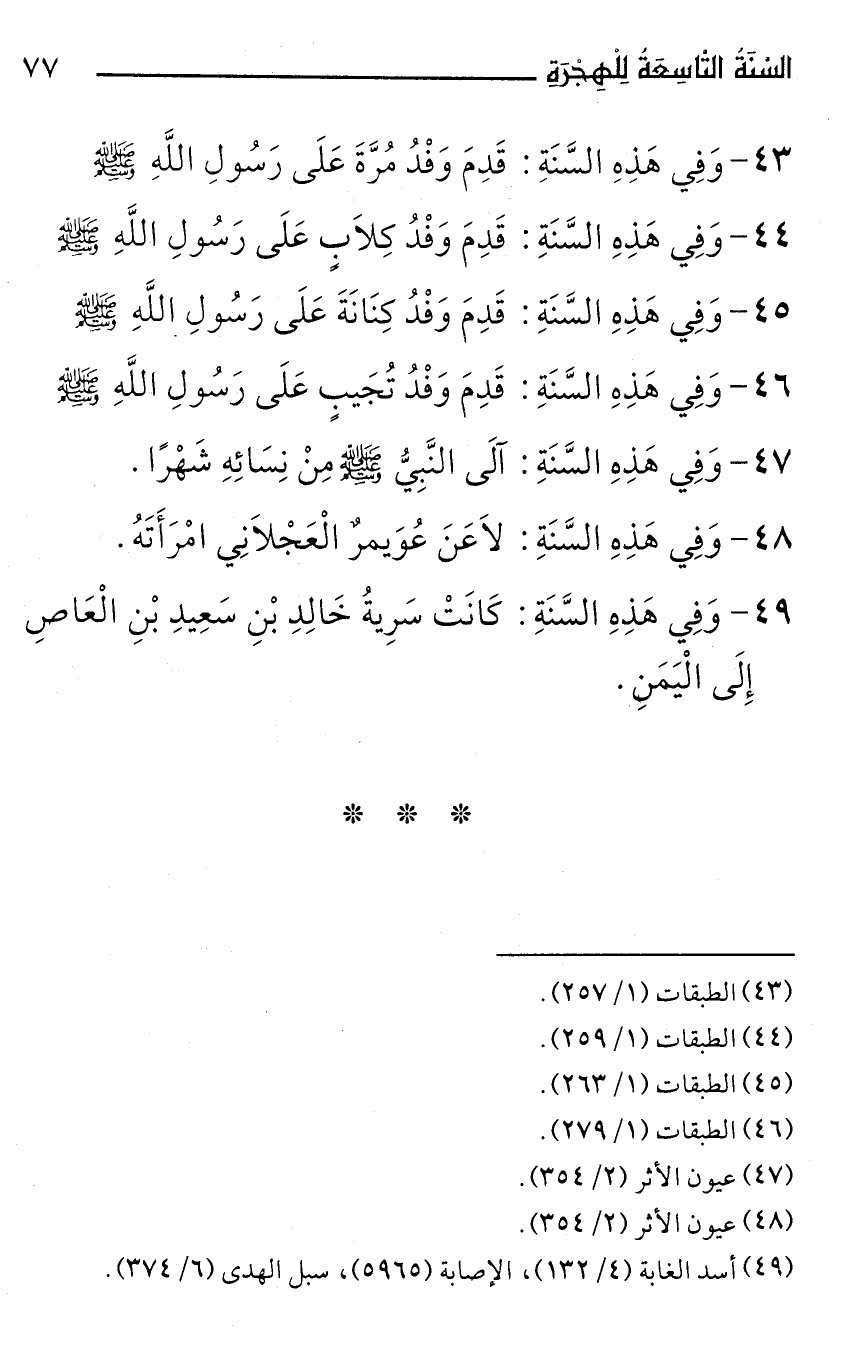 السَّنَةُ التَّاسِعَةُ لِلْهِجْرَةِ ٧٧
٤٣- وَفِي هَذِهِ السَّنَةِ : قَدِمَ وَفْدُ مُرَّةَ عَلَى رَسُولِ اللَّهِ ﷺ
٤٤- وَفِي هَذِهِ السَّنَةِ : قَدِمَ وَفْدُ كِلاَبٍ عَلَى رَسُولِ اللَّهِ ﷺ
٤٥- وَفِي هَذِهِ السَّنَةِ : قَدِمَ وَفْدُ كِنَانَةَ عَلَى رَسُولِ اللَّهِ ﷺ
٤٦- وَفِي هَذِهِ السَّنَةِ : قَدِمَ وَفْدُ تُجَيبٍ عَلَى رَسُولِ اللَّهِ ﷺ
٤٧- وَفِي هَذِهِ السَّنَةِ : آلَى النَّبِيُّ ﷺ مِنْ نِسَائِهِ شَهْرًا .
٤٨- وَفِي هَذِهِ السَّنَةِ : لاَعَنَ عُوَيمرٌ الْعَجْلاَنِي امْرَأَتَهُ .
٤٩- وَفِي هَذِهِ السَّنَةِ : كَانَتْ سَرِيةُ خَالِدِ بْنِ سَعِيدِ بْنِ الْعَاصِ
إِلَى الْيَمَنِ .
* * *
(٤٣) الطبقات (١/ ٢٥٧).
(٤٤) الطبقات (١/ ٢٥٩).
(٤٥) الطبقات (١/ ٢٦٣).
(٤٦) الطبقات (١/ ٢٧٩).
(٤٧) عيون الأثر (٢/ ٣٥٤).
(٤٨) عيون الأثر (٢/ ٣٥٤).
(٤٩) أسد الغابة (٤/ ١٣٢)، الإصابة (٥٩٦٥)، سبل الهدى (٦/ ٣٧٤).